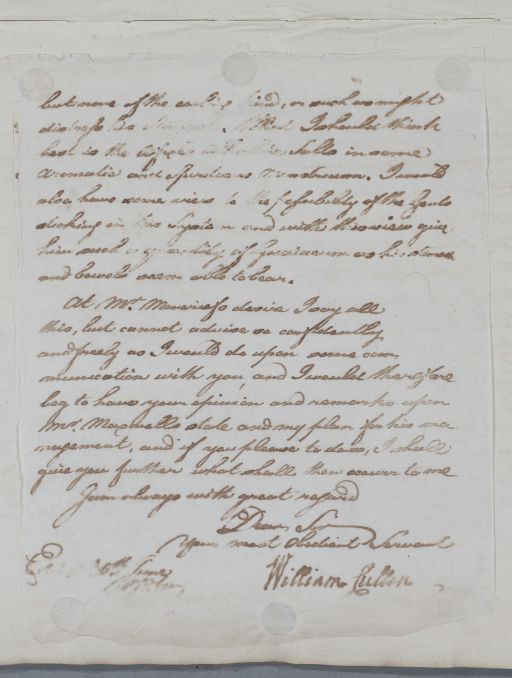 but none of the cooling kind, or such as might
distress his Stomach. What I should think
best is the
aromatic and spirituous menstruum. I would
also have some view to the possibility of the Gouts
sticking in his System and with this view give
him such a quantity of Guaiacum as his stomach
and bowels seem able to bear.
At Mr. desire I say all
this, but cannot advise so confidently
and freely as I would do upon some com
munication with you, and I would therefore
beg to have your opinion and remarks upon
Mr. Maxwells state and my plan for his ma
nagement, and if you please to do so, I shall
give you further what shall then occurr to me
I am always with great regard
Dear Sir
Your most Obedient Servant
June
William Cullen